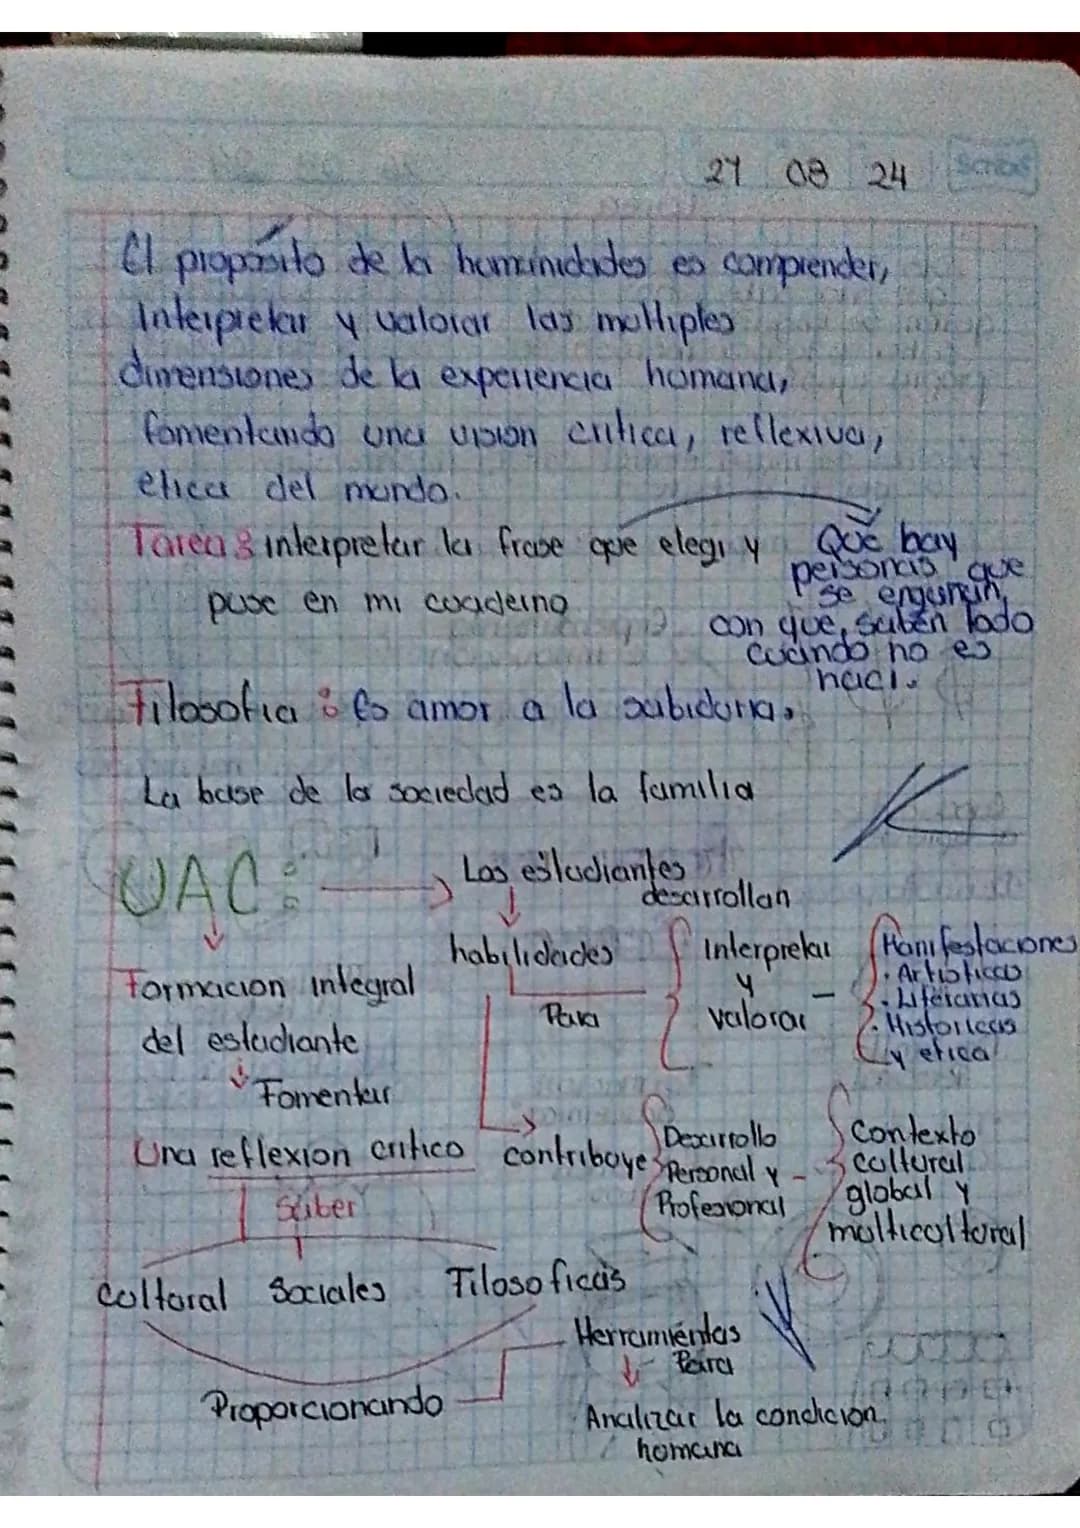 27 08 24
Scribe
El proposito de la humanidades es comprender,
Interpretar y valorar las multiples
dimensiones de la experiencia humana,
fomentando una vision critica, reflexiva,
etica del mundo.
Tarea: interpretar la frase que elegi y
puse en mi cuaderno
Que hay
personas que
se
con que, saben todo
cuando no es
naci.
Filosofia: Es amor a la sabiduria.
La base de la sociedad es la familia
UAC:
Los estudiantes
desarrollan
habilidades
Para
Interpretar
y
valorar
Manifestaciones
· Artisticas
· Literarias
· Historicas
y etica
Formacion integral
del estudiante
Fomentar
Una reflexion critico
Saber
contribuye
Desarrollo
Personal y
Profesional
Contexto
cultural
global y
multicultural
Cultural Sociales Filosoficas
Proporcionando
Herramientas
Para
Analizar la condicion
humana